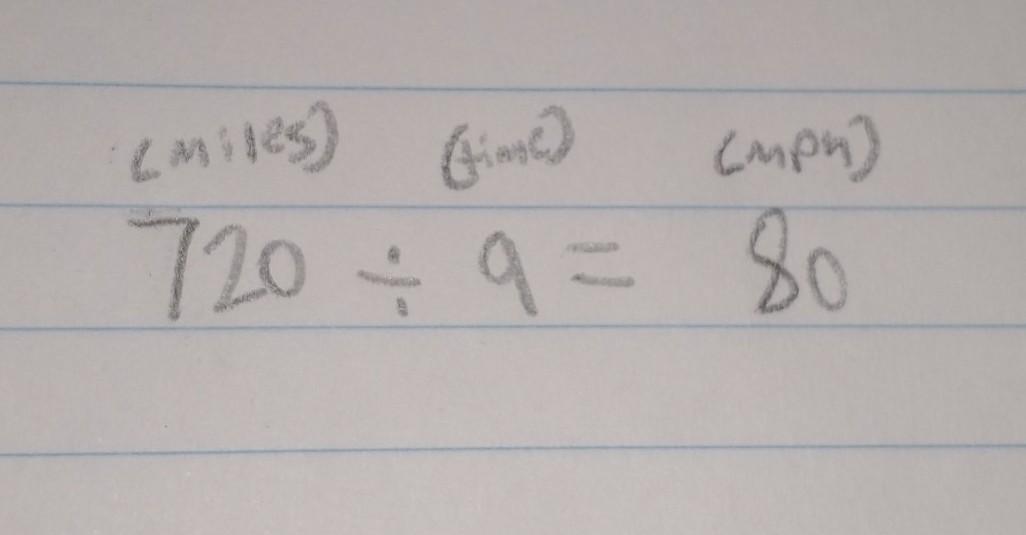 (miles) (time) (mph)
720 ÷ 9 = 80